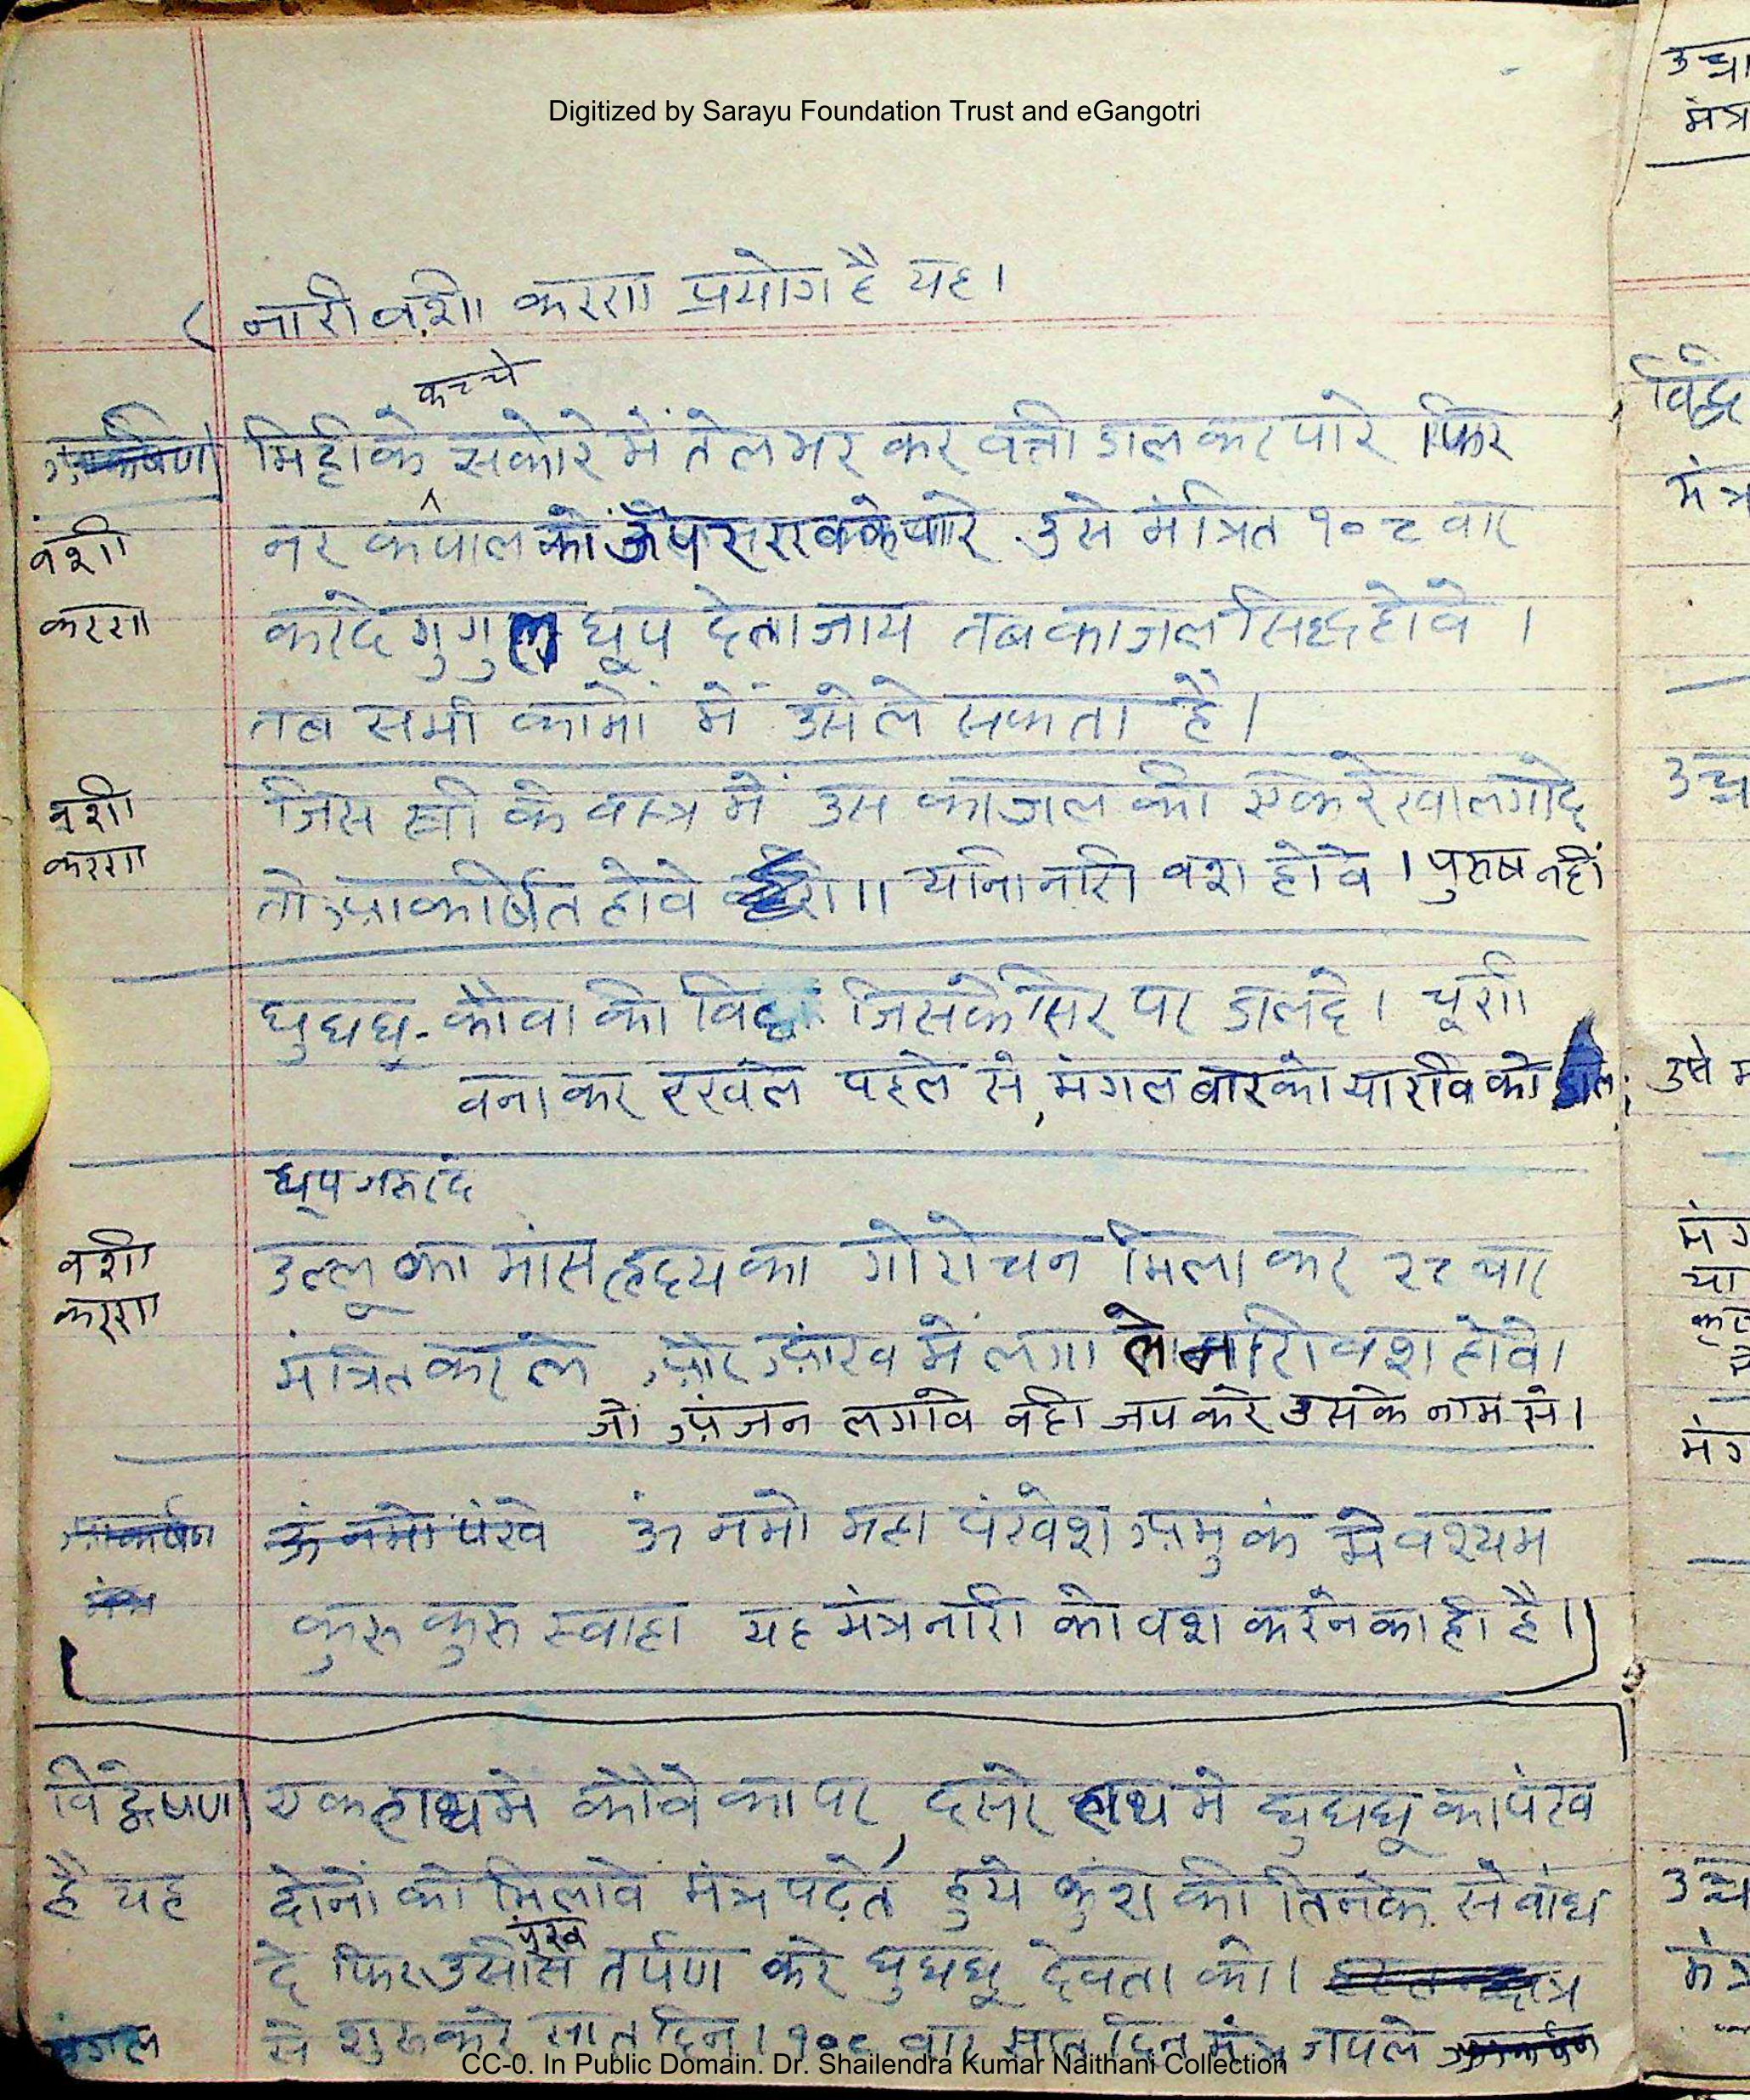 Digitized by Sarayu Foundation Trust and eGangotri
( नारी वशी करण प्रयोग है यह।
कच्चे
मिट्टी के सकोरे में तेल भर कर वत्ती डाल कर पारे फिर
वशी
नर कपाल को उसे मंत्रित १०८ वार
करण
करदे गुगुल धूप देता जाय तब काजल सिद्ध होवे ।
तब सभी कामों में उसे ले सकता है।
वशी
जिस स्त्री के वस्त्र में उस काजल की एक रेखा लगादे
करण
तो आकर्षित होवे यानि नारी वश होवे । पुरुष नहीं
घुघघू - कौवा की जिसके सिर पर डालदे। चूर्ण
वना कर रखले पहले से, मंगल बार को या रवि को
धूप
वशी
उल्लू का मांस हृदय का गोरोचन मिला कर २८ बार
करण
मंत्रित कर ले और आंख में लगा ले नारी वश होवे।
जो अंजन लगावे वही जप करे उसके नाम से।
आकर्षण
ॐ नमो पंखे ॐ नमो महा पंखेश अमुकं मे वश्यम
मंत्र
कुरु कुरु स्वाहा यह मंत्र नारी को वश करने का ही है।
विद्वेषण
एक हाथ मे कौवे का पर, दूसरे हाथ मे घुघघू का पंख
है यह
दोनों को मिलावे मंत्र पढ़ते हुये कुश के तिनके से वांध
पंख
दे फिर उसी से तर्पण करे घुघघू देवता को।
से शुरु करे सात दिन। १०८ वार सात दिन मंत्र जपले
CC-0. In Public Domain. Dr. Shailendra Kumar Naithani Collection
उच्चा
मंत्र
मंत्र
उसे
या
मंत्र